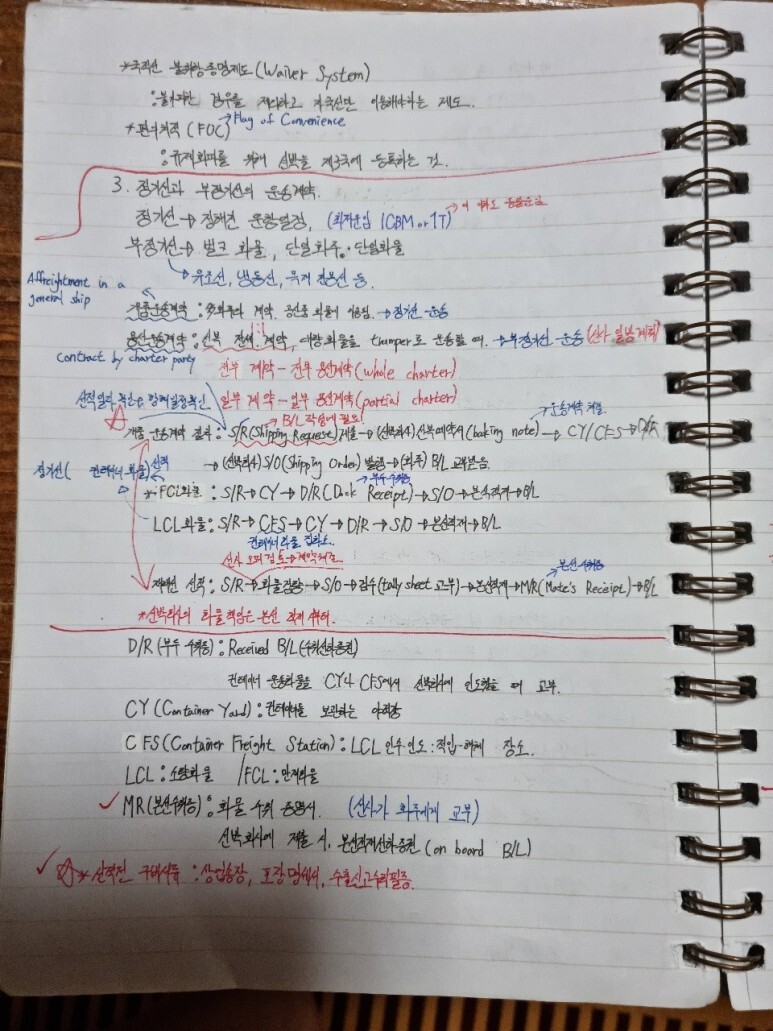 *국적선 불취항증명제도(Waiver System)
:불가피한 경우를 제외하고 자국선만 이용해야하는 제도.
*편의치적(FOC) → Flag of Convenience
:규제회피를 위해 선박을 제3국에 등록하는 것.
3. 정기선과 부정기선의 운송계약.
정기선→정해진 운항일정, (최저운임 1CBM or 1T)
부정기선→벌크 화물, 단일화주·단일화물
유조선, 냉동선, 목재 전용선 등.
Affreightment in a general ship
개품운송계약: 계약. 공산품 화물에 이용됨. →정기선-운송
용선운송계약: 선복 계약, 대량화물을 tramper로 운송할 때. →부정기선-운송
contract by charter party
전부 계약-전부 용선계약(whole charter)
일부 계약-일부 용선계약(partial charter)
→B/L 작성에 필요! →운송계약 체결
개품 운송계약 절차: S/R(Shipping Request)제출→(선박회사)선복예약서(booking note)→CY/CFS→D/R
선적→(선박회사)S/O(Shipping Order) 발행→(화주) B/L 교부받음.
정기선(컨테이너 화물)
부두수취증
*FCL화물: S/R→CY→D/R(Dock Receipt)→S/O→본선적재→B/L
LCL화물: S/R→CFS→CY→D/R→S/O→본선적재→B/L
컨테이너화물 집화소.
본선수취증
재래선 선적: S/R→화물검량→S/O→검수(tally sheet 교부)→본선적재→M/R(Mate's Receipt)→B/L
*선박회사의 화물책임은 본선 적재 부터.
D/R(부두 수취증): Received B/L(수취선하증권)
컨테이너 운송화물을 CY나 CFS에서 선박회사에 인도했을 때 교부.
CY(Container Yard): 컨테이너를 보관하는 야적장
CFS(Container Freight Station): LCL 인수인도:적입-해체 장소.
LCL:소량화물 /FCL:만재화물
✓ MR(본선수취증): 화물 수취 증명서. (선사가 화주에게 교부)
선박회사에 제출 시, 본선적재선하증권(on board B/L)
✓ ☆* 선적전 구비서류 :상업송장, 포장명세서, 수출신고수리필증.